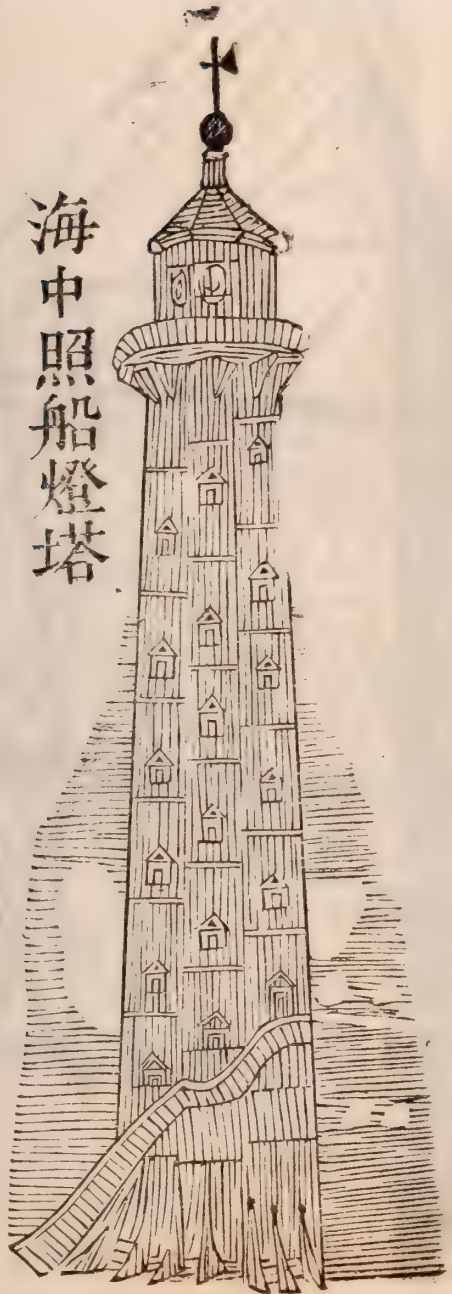 海中照船燈塔